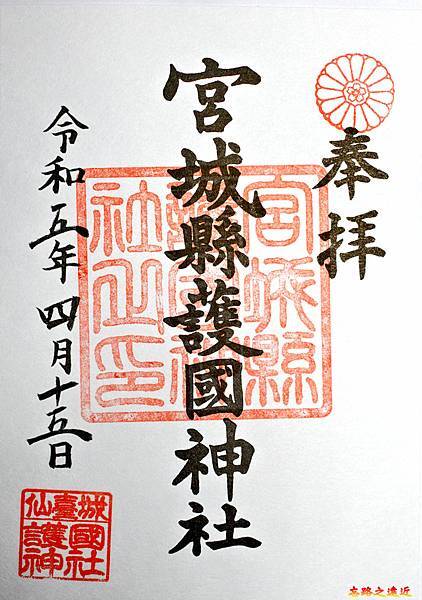 奉拝
宮城縣護國神社
宮城縣護國神社之印
令和五年四月十五日
仙臺城護國神社
走路之遠近